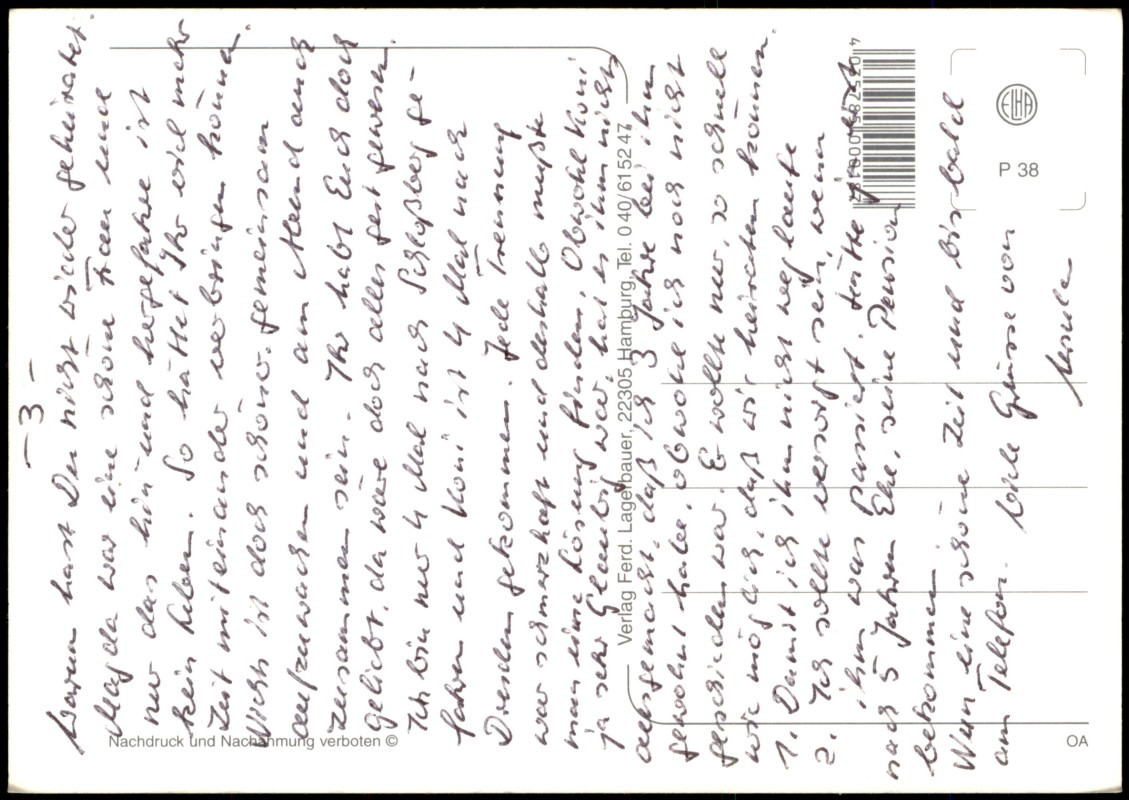 – 3 –
Warum hast Du nicht wieder geheiratet.
Magda war eine schöne Frau und
nur das hin- und hergefahre ist
kein Leben. So hättet Ihr viel mehr
Zeit miteinander verbringen können.
Wichtig ist doch schön, gemeinsam
aufzuwachen und am Abend auch
zusammen sein. Ihr habt Euch doch
geliebt, da wäre doch alles gut gewesen.
Ich bin nur 4 Mal nach Schloßberg ge-
fahren und Koni ist 4 Mal nach
Dresden gekommen. Jede Trennung
war schmerzhaft und deshalb mußte
man eine Lösung finden. Obwohl Koni
ja sehr gläubig war, hat es ihm nichts
ausgemacht, daß ich 3 Jahre bei ihm
gewohnt habe, obwohl ich noch nicht
geschieden war. Er wollte nur, so schnell
wie möglich, daß wir heiraten können.
1. Damit ich ihm nicht weg laufe
2. Ich sollte versorgt sein, wenn
ihm was passiert. Hätte ja erst
nach 5 Jahren Ehe, seine Pension
bekommen.
Wünsche eine schöne Zeit und bis bald
am Telefon. Viele Grüsse von
Ursula
Nachdruck und Nachahmung verboten ©
Verlag Ferd. Lagerbauer, 22305 Hamburg, Tel. 0 40/61 52 47
P 38
OA